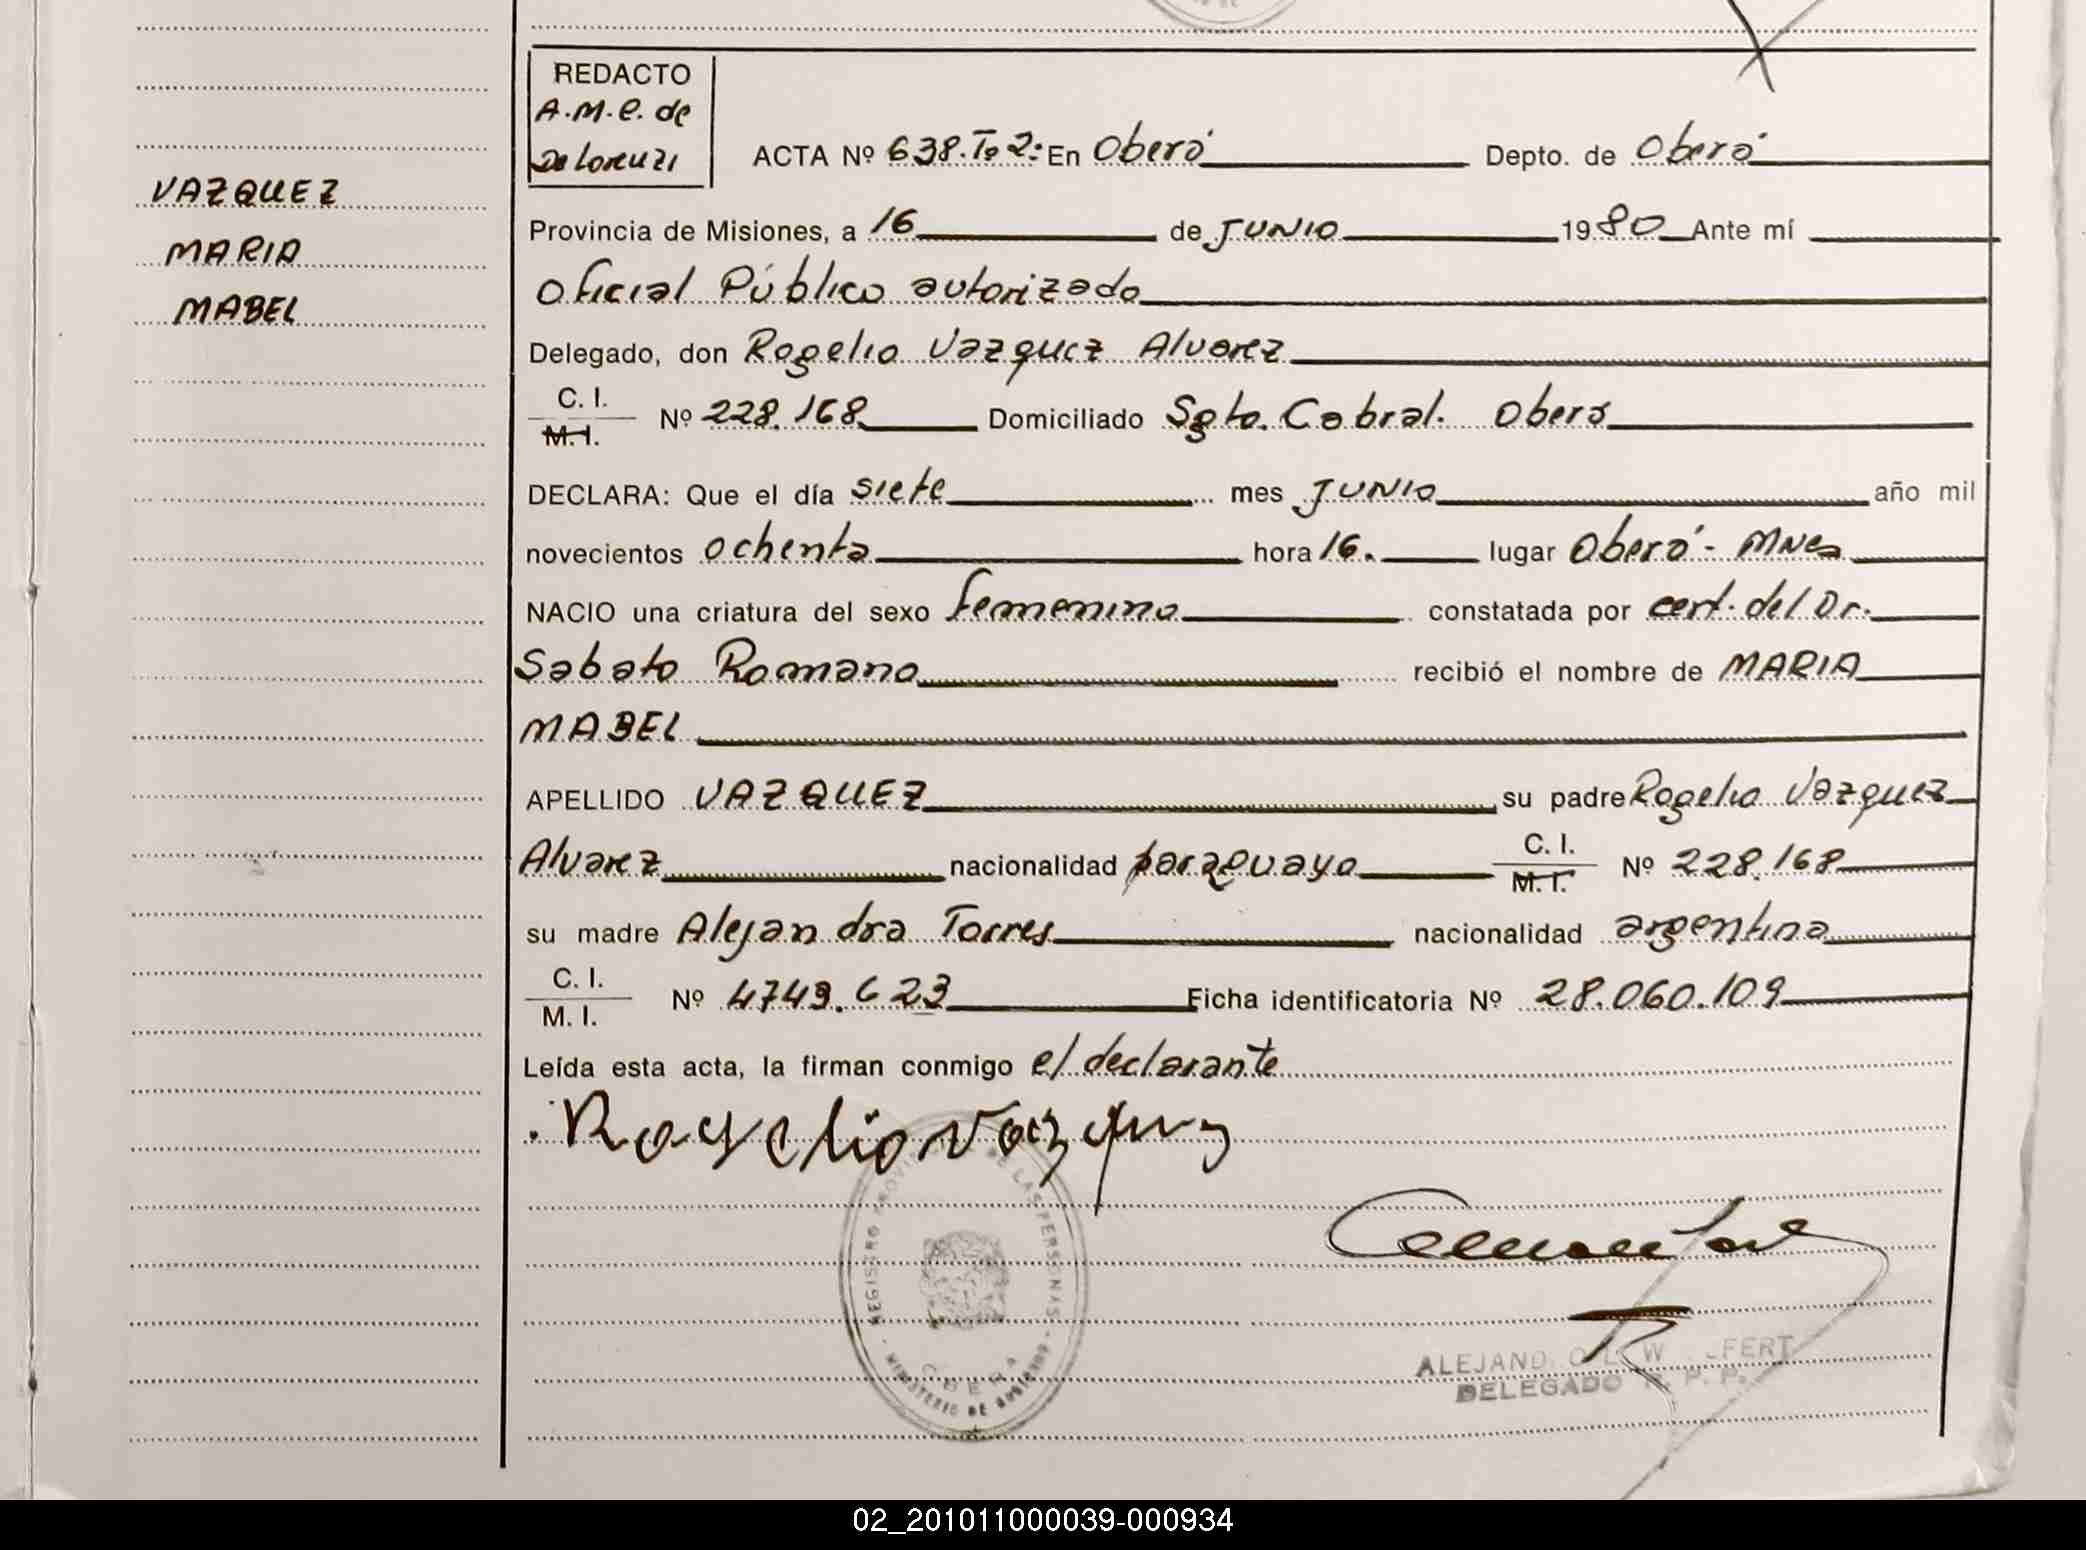 REDACTO
A.M.E. de
De Lorenzi
ACTA Nº 638.Tº2: En Oberá Depto. de Oberá
VAZQUEZ
MARIA
MABEL
Provincia de Misiones, a 16 de JUNIO 1980 Ante mí
Oficial Público autorizado
Delegado, don Rogelio Vazquez Alvarez
C. I.
M. I. Nº 228.168 Domiciliado Sgto. Cabral. Oberá
DECLARA: Que el día siete mes JUNIO año mil
novecientos ochenta hora 16. lugar Oberá - Mnes
NACIO una criatura del sexo femenino constatada por cert. del Dr.
Sabato Romano recibió el nombre de MARIA
MABEL
APELLIDO VAZQUEZ su padre Rogelio Vazquez
Alvarez nacionalidad paraguayo C. I. M. I. Nº 228.168
su madre Alejandra Torres nacionalidad argentina
C. I.
M. I. Nº 4749.623 Ficha identificatoria Nº 28.060.109
Leída esta acta, la firman conmigo el declarante
Rogelio Vazquez
REGISTRO PROVINCIAL DE LAS PERSONAS
OBERA
MINISTERIO DE GOBIERNO
DELEGADO R. P. P.
02_201011000039-000934